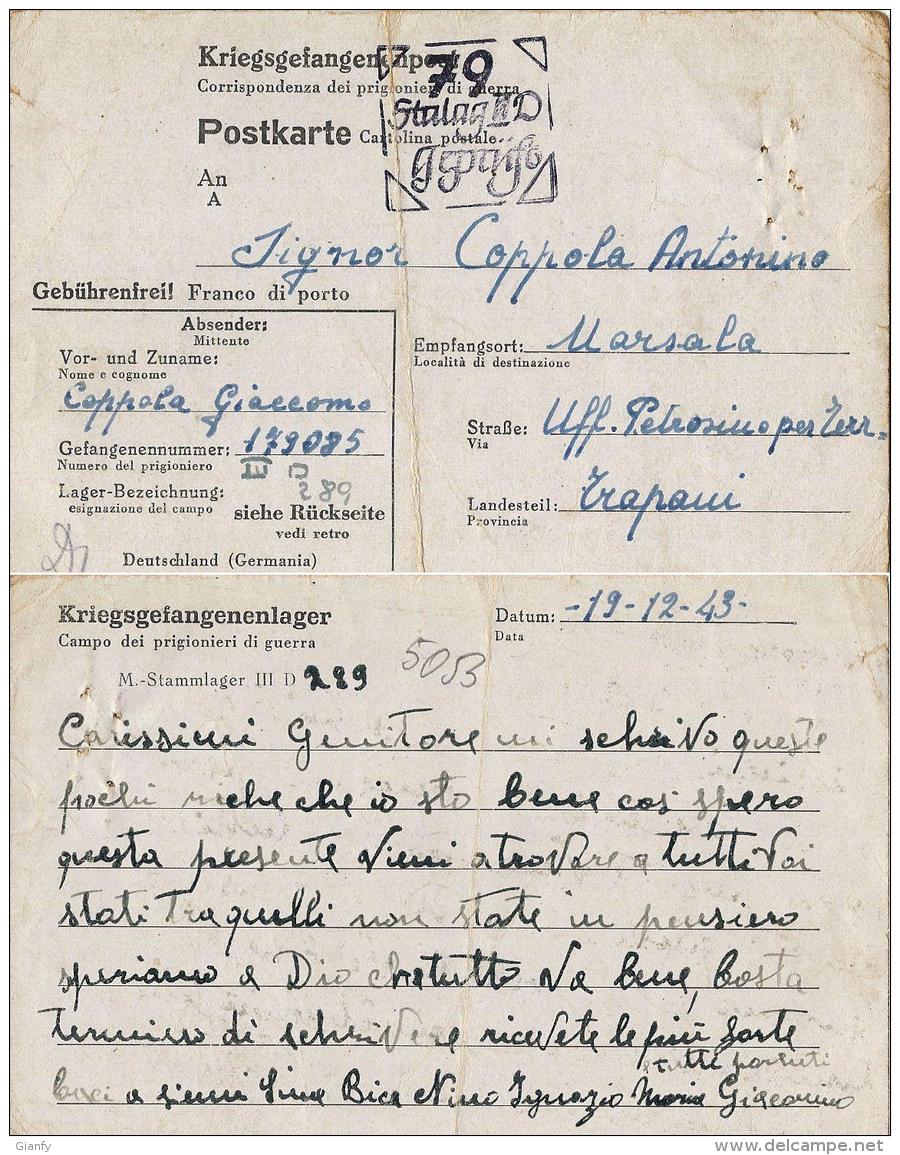 Kriegsgefangenenpost
Corrispondenza dei prigionieri di guerra
79
Stalag III D
Geprüft
Postkarte Cartolina postale
An
A
Signor Coppola Antonino
Gebührenfrei! Franco di porto
Absender:
Mittente
Vor- und Zuname:
Nome e cognome
Coppola Giaccomo
Gefangenennummer: 179085
Numero del prigioniero
III D
289
Lager-Bezeichnung:
esignazione del campo
siehe Rückseite
vedi retro
Deutschland (Germania)
Empfangsort: Marsala
Località di destinazione
Straße: Uff. Petrosino per Terr=
Via
Landesteil: Trapani
Provincia
Kriegsgefangenenlager
Campo dei prigionieri di guerra
Datum: -19-12-43-
Data
M.-Stammlager III D 289
5053
Carissimi Genitore mi schrivo queste
pochi riche che io sto bene cosi spero
questa presente vieni a trovare a tutti voi
stati traquilli non state in pensiero
speriamo a Dio che tutto va bene, basta
termino di schrivere ricevete le più forte
tutti parenti
baci a Bice Nino Ignazio Maria Giacomino
Gianfy
delcampe.net